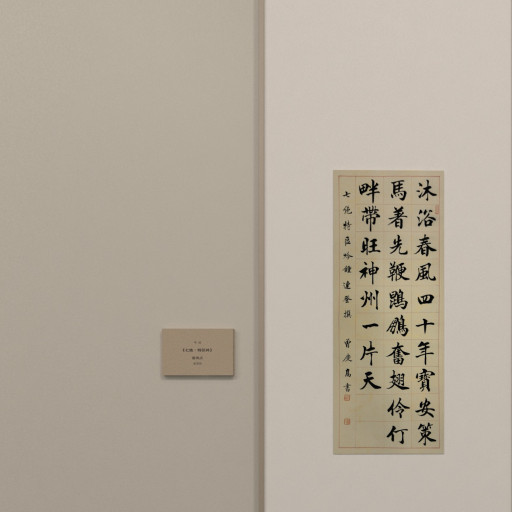 沐浴春風四十年寶安策
馬著先鞭鵾鵬奮翅伶仃
畔帶旺神州一片天
七绝特區吟鍾建登撰 曾庆高書